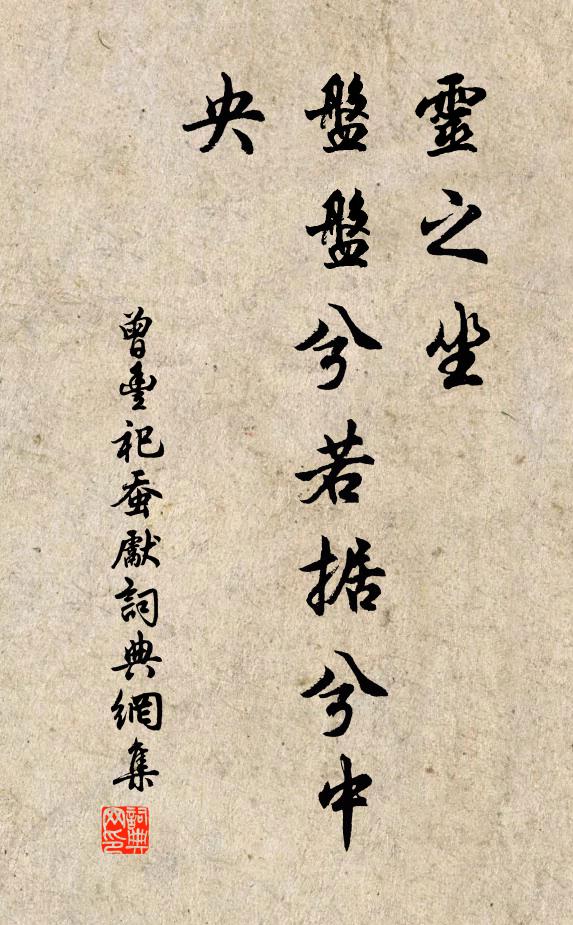 靈之坐
盤盤兮若据兮中
央
曾豊祀蚕獻詞典網集
詞典网印